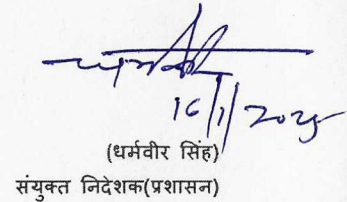 16/1/2025
(धर्मवीर सिंह)
संयुक्त निदेशक(प्रशासन)